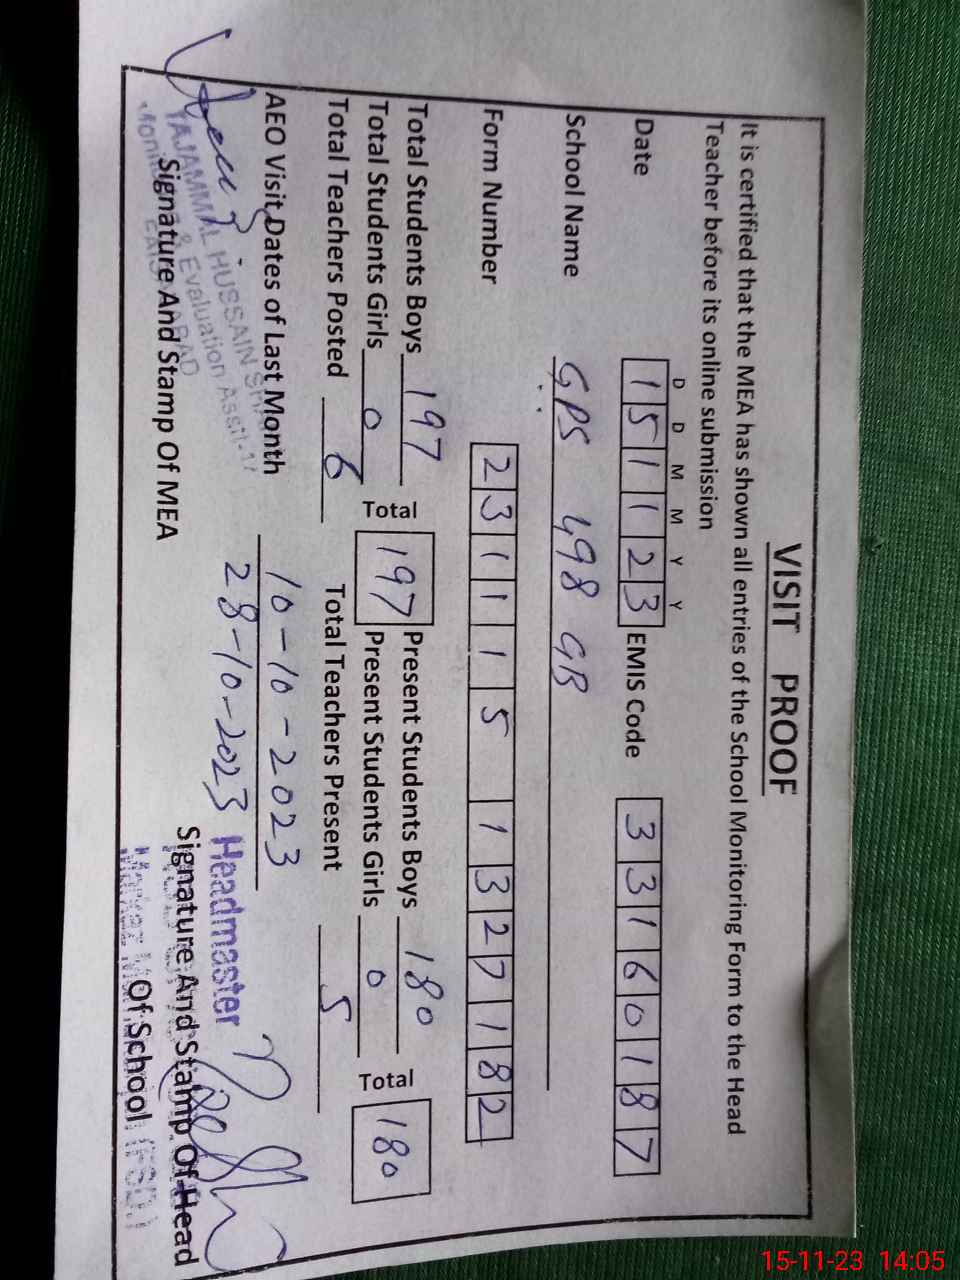 VISIT PROOF
It is certified that the MEA has shown all entries of the School Monitoring Form to the Head
Teacher before its online submission
D D M M Y Y
Date 1 5 1 1 2 3 EMIS Code 3 3 1 6 0 1 8 7
School Name GPS 498 GB
Form Number 2 3 1 1 1 5 1 3 2 7 1 8 2
Total Students Boys 197 Total 197 Present Students Boys 180 Total 180
Total Students Girls 0 Present Students Girls 0
Total Teachers Posted 6 Total Teachers Present 5
AEO Visit Dates of Last Month 10-10-2023
28-10-2023
TAJAMMAL HUSSAIN
& Evaluation
Signature And Stamp Of MEA
Headmaster
Signature And Stamp Of Head
Of School
15-11-23 14:05